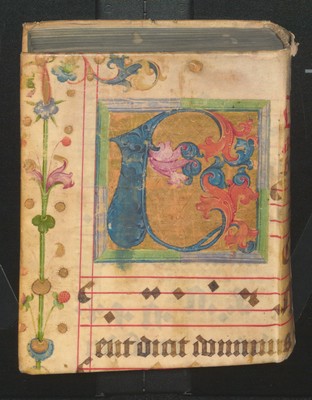 eut dicit dominus